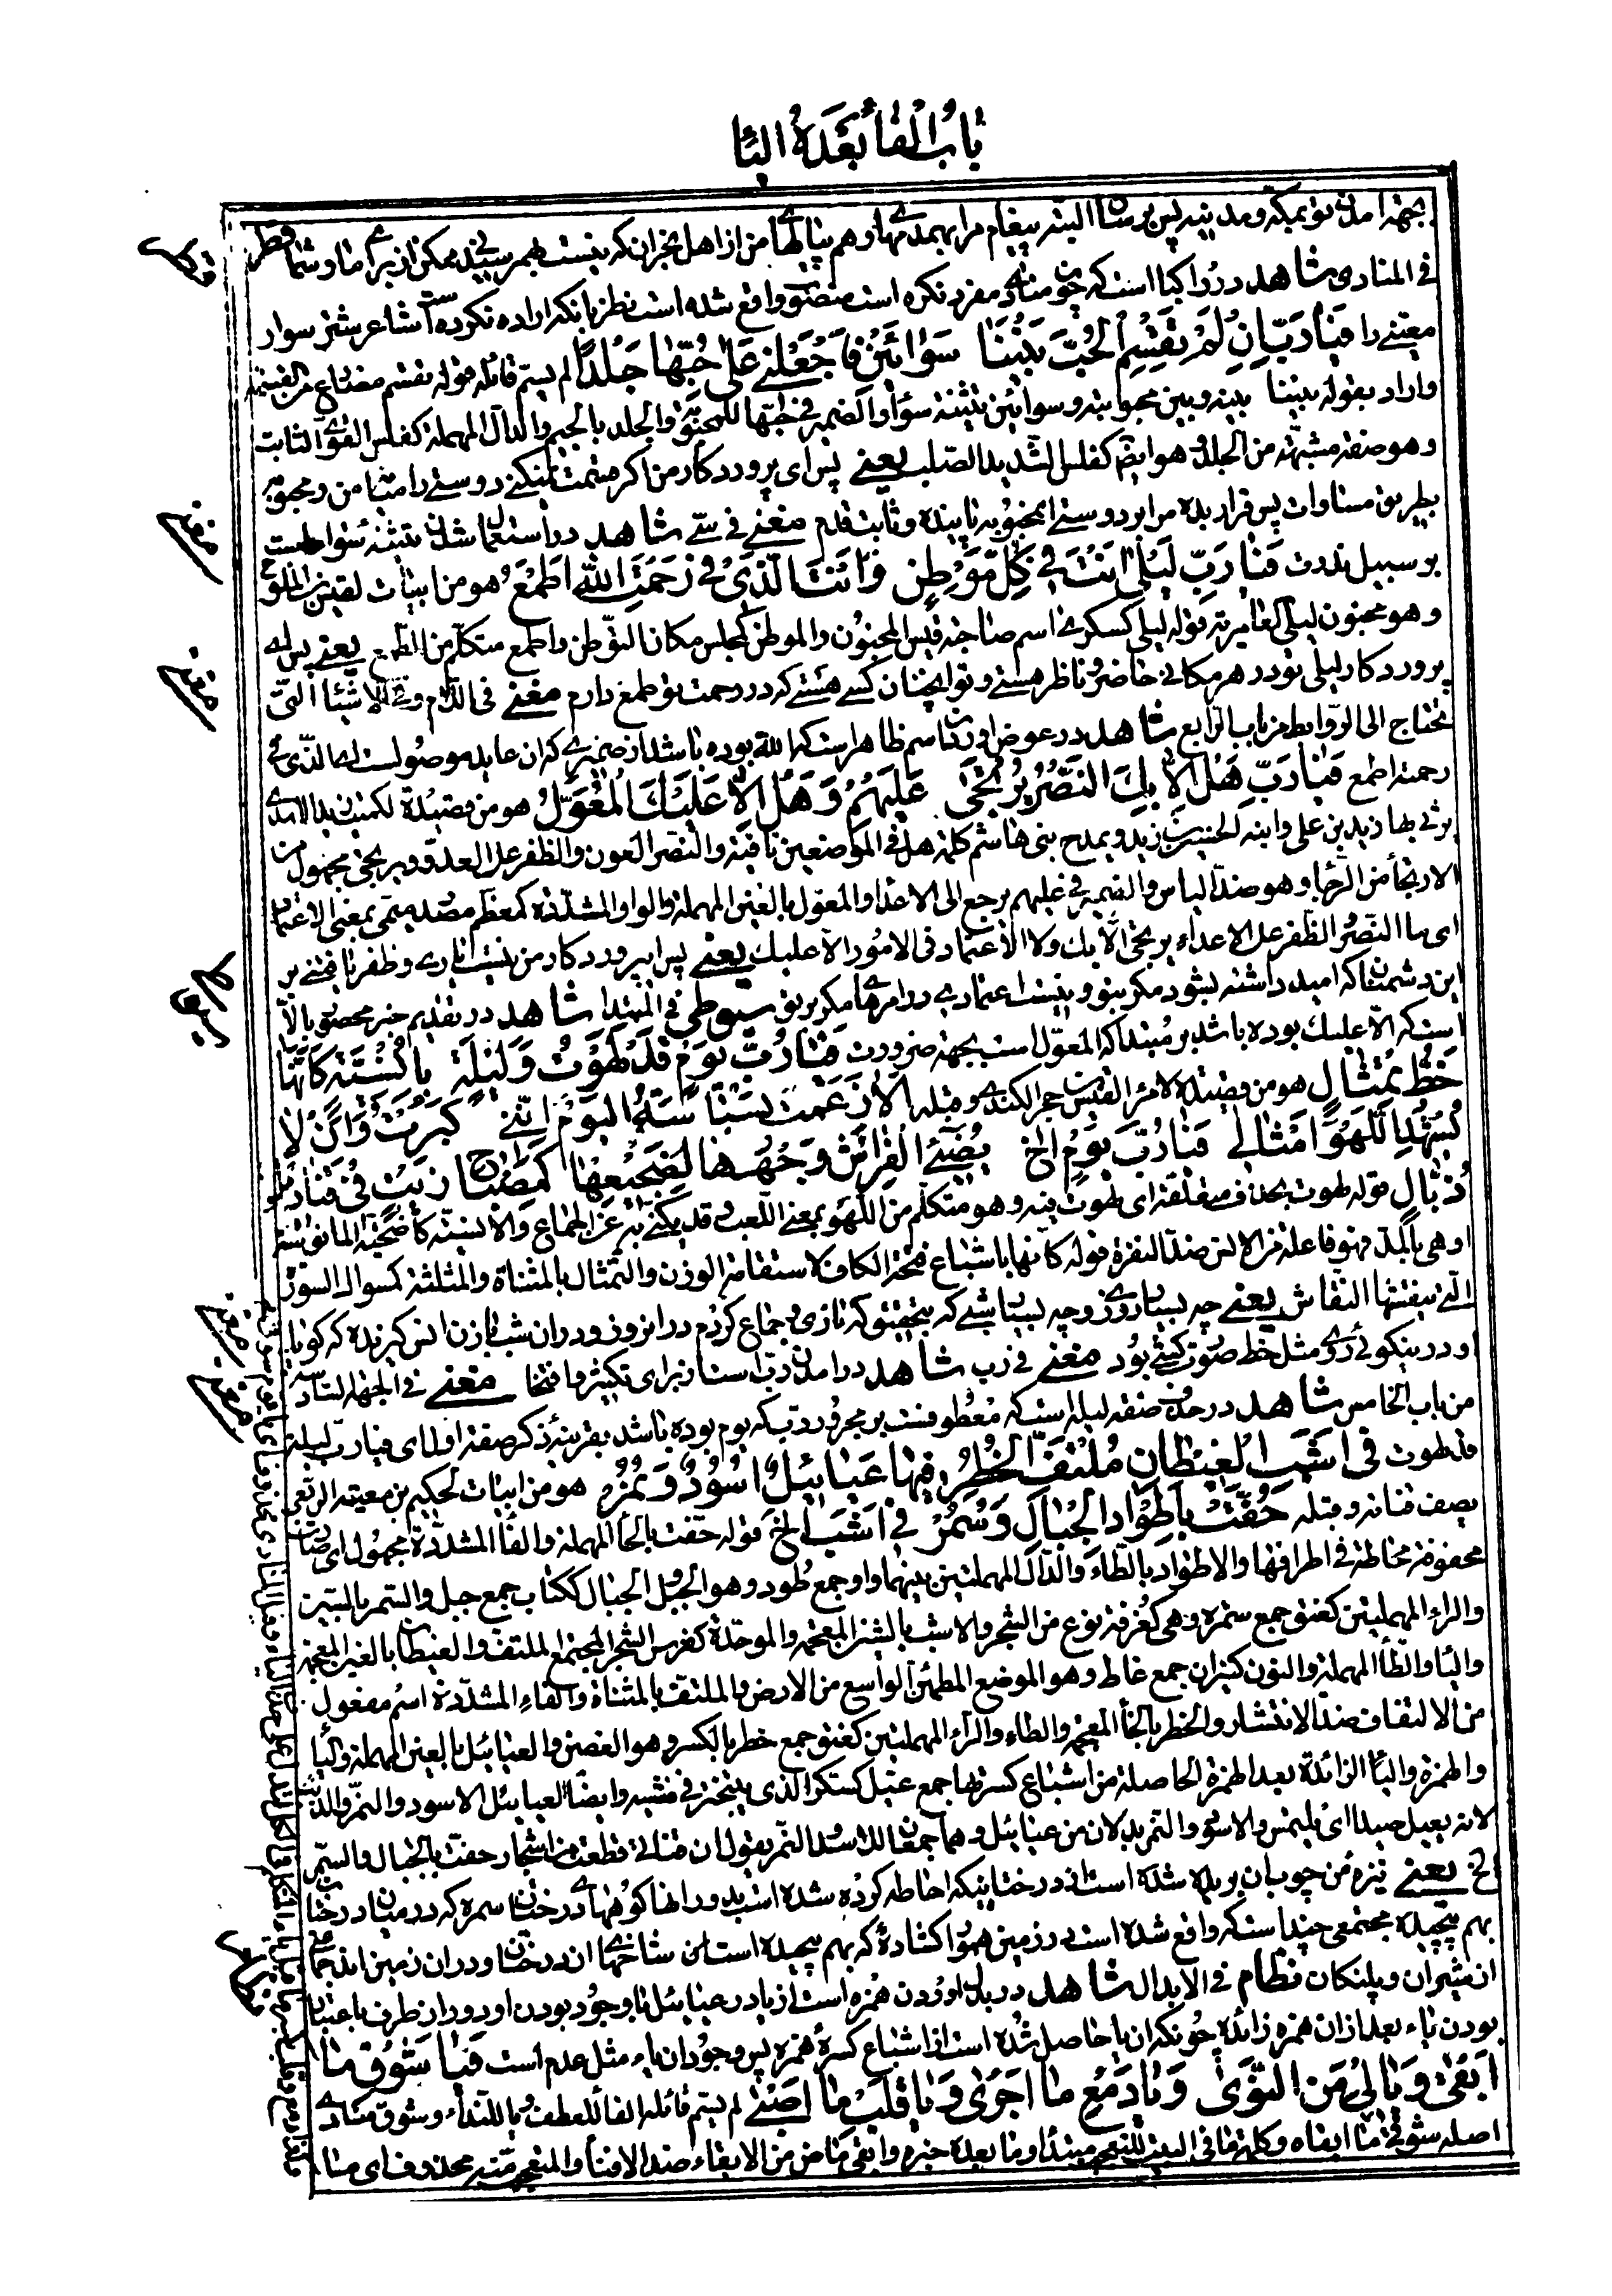 باب الفاء بعده الیاء
بجهة آمدن تو بمکه و مدینه پس برسان البته پیغام مرا بهمدمهای و هم پیالهای من از اهل نجران که نیست بهمرسیدنی ممکن از برای ما و شما قطر
فی المنادی شاهد در راکبا است که چون منادی مفرد نکره است منصوب واقع شده است نظر بانکه اراده نکرده است شاعر شتر سوار
معینی را فَیَا رَبِّ اِنْ لَمْ تَقْسِمِ الْحُبَّ بَیْنَنَا سَوَائَیْنِ فَاجْعَلْنِی عَلَی حُبِّهَا جَلْدًا لم یسم قائله قوله تقسم مضارع من القسمة
واراد بقوله بیننا بینه وبین محبوبته وسوائین تثنیة سواء والضمیر فی حبها للمحبوبة والجلد بالجیم والدال المهملة کفلس القوی الثابت
وهو صفة مشبهة من الجلد وهو ایضا کفلس الشدید الصلب یعنی پس ای پروردکار من اکر قسمت نمیکنی دوستی را میان من و محبوبه
بطریق مساوات پس قرار بده مرا بر دوستی محبوبه پاینده و ثابت قدم مغنی فی سیّ شاهد در استعمال شدن تثنیه سواء است
بر سبیل ندرت فَیَا رَبِّ لَیْلَی اَنْتَ فِی کُلِّ مَوْطِنٍ وَاَنْتَ الَّذِی فِی رَحْمَةِ اللهِ اَطْمَعُ هو من ابیات لقیس بن الملوح
وهو مجنون لیلی العامریة قوله لیلی کسکری اسم صاحبة قیس المجنون والموطن کمجلس مکان التوطن واطمع متکلم من الطمع یعنی پس ای
پروردکار لیلی تو در هر مکانی حاضر و ناظر هستی و تو انچنان کسی هستی که در رحمت تو طمع دارم مغنی فی اللام وفی الاشیاء التی
تحتاج الی الروابط من باب الرابع شاهد در عوض اوردن اسم ظاهر است که الله بوده باشد از ضمیری که ان عاید موصولست ای الذی فی
رحمته اطمع فَیَا رَبِّ هَلْ اِلَّا بِکَ النَّصْرُ یُرْتَجَی عَلَیْهِمْ وَهَلْ اِلَّا عَلَیْکَ الْمُعَوَّلُ هو من قصیدة لکمیت بن زید الاسدی
یرثی بها زید بن علی وابنه الحسین بن زید ویمدح بنی هاشم کلمة هل فی الموضعین نافیة والنصر العون والظفر علی العدو ویرتجی مجهول من
الارتجاء من الرجاء وهو ضد الیاس والضمیر فی علیهم یرجع الی الاعداء والمعول بالعین المهملة والواو المشددة کمعظم مصدر میمی بمعنی الاعتماد
ای ما النصر والظفر علی الاعداء یرتجی الا بک ولا الاعتماد فی الامور الا علیک یعنی پس ای پروردکار من نیست یاری و ظفر یافتنی بر
این دشمنان که امید داشته بشود مکر بتو و نیست اعتمادی در امرها مکر بر تو سیوطی فی المبتدا شاهد در تقدیم خبر محصور بالا
است که الا علیک بوده باشد بر مبتدا که المعول است بجهة ضرورت فَیَا رُبَّ یَوْمٍ قَدْ لَهَوْتُ وَلَیْلَةٍ بِآنِسَةٍ کَاَنَّهَا
خَطُّ تِمْثَالِ هو من قصیدة لامرء القیس بن حجر الکندی وقبله اَلَا زَعَمَتْ بَسْبَاسَةُ الْیَوْمَ اِنَّنِی کَبَرْتُ وَاَنْ لَا
یَشْهَدَ اللَّهْوَ اَمْثَالِی فَیَا رُبَّ یَوْمٍ الخ یُضِیءُ الْفِرَاشَ وَجْهُهَا لِضَجِیعِهَا کَمِصْبَاحِ زَیْتٍ فِی قَنَادِیلِ
ذُبَّالِ قوله لهوت بحذف متعلقه ای لهوت فیه وهو متکلم من اللهو بمعنی اللعب وقد یکنی به عن الجماع والآنسة کصاحبة المانوسة
او هی بالمد فهو فاعلة من الانس ضد النفرة قوله کانها باشباع فتحة الکاف لاستقامة الوزن والتمثال بالمثناة والمثلثة کسروال الصورة
التی ینقشها النقاش یعنی چه بسیار روزی و چه بسیار شبی که بتحقیق که بازی و جماع کردم در انروز و در ان شب بازن انس کیرنده که کویا
او در نیکوئی روی مثل خط صورت کشی بود مغنی فی رب شاهد در امدن رب است از برای تکثیر و افتخار مغنی فی الجملة الثالثة
من باب الخامس شاهد در حذف صفة لیلة است که معطوفست بر مجرور رب که یوم بوده باشد بقرینه ذکر صفة اول ای فیا رب لیلة
قد لهوت فِی اَشَبِ الْغِیطَانِ مُلْتَفِّ الْخُطُرْ فِیهَا عَیَائِیلُ اُسُودٌ وَنُمُرْ هو من ابیات لحکیم بن معیة الربعی
یصف قناته وقبله حُفَّتْ بِاَطْوَادِ الْجِبَالِ وَسُمُرْ فِی اَشَبِ الخ قوله حفت بالحاء المهملة والفاء المشددة مجهول ای صارت
محفوفة محاطة فی اطرافها والاطواد بالطاء والدال المهملتین بینهما واو جمع طود وهو الجبل والجبال ککتاب جمع جبل والسمر بالسین
والراء المهملتین کعنق جمع سمرة وهی کغرفة نوع من الشجر والاشب بالشین المعجمة والموحدة کفرس الشجر المجتمع الملتف والغیطان بالغین المعجمة
والیاء والطاء المهملة والنون کنیران جمع غائط وهو الموضع المطمئن الواسع من الارض والملتف بالمثناة والفاء المشددة اسم مفعول
من الالتفاف ضد الانتشار والخطر بالخاء المعجمة والطاء والراء المهملتین کعنق جمع خطر بالکسر وهو الغصن والعیائیل بالعین المهملة والیاء
والهمزة والیاء الزائدة بعد الهمزة الحاصلة من اشباع کسرتها جمع عیل کسکر الذی یتبختر فی مشیه وایضا العیائیل الاسود والنمر والذئب
لانه یعیل صیدا ای یلتمس والاسود والنمر بدلان من عیائیل وهما جمعان للاسد والنمر یقول ان قناتی قطعت من اشجار حفت بالجبال والسمر
الخ یعنی نیزه من چوب ان بریده شده است از درختانیکه احاطه کرده شده است بدور انها کوههای و درختان سمره که در میان درختان
بهم پیچیده مجتمعی چند است که واقع شده است در زمین هموار کشاده که بهم پیچیده است ان شاخهای ان درختان و در ان زمین اند جماعتی
از شیران و پلنکان نظام فی الابدال شاهد در بدل اوردن همزه است از یاء در عیائیل با وجود بودن او دور از طرف باعتبار
بودن یاء بعد از ان همزه زائده چونکه ان یا حاصل شده است از اشباع کسره همزه پس وجود ان یاء مثل عدم است فَیَا شَوْقِ مَا
اَبْقَی وَیَا لِی مِنَ النَّوَی وَیَا دَمْعِ مَا اَجْرَی وَیَا قَلْبِ مَا اَصْبَی لم یسم قائله الفاء للعطف ویا للنداء وشوق منادی
اصله شوقی ما ابقاه وکلمة ما فی البیت للتعجب مبتدا وما بعده خبره وابقی ماض من الابقاء ضد الافناء والمتعجب منه محذوف ای ما
قطر
مغنی
مغنی
سیوطی
مغنی
مغنی
نظام